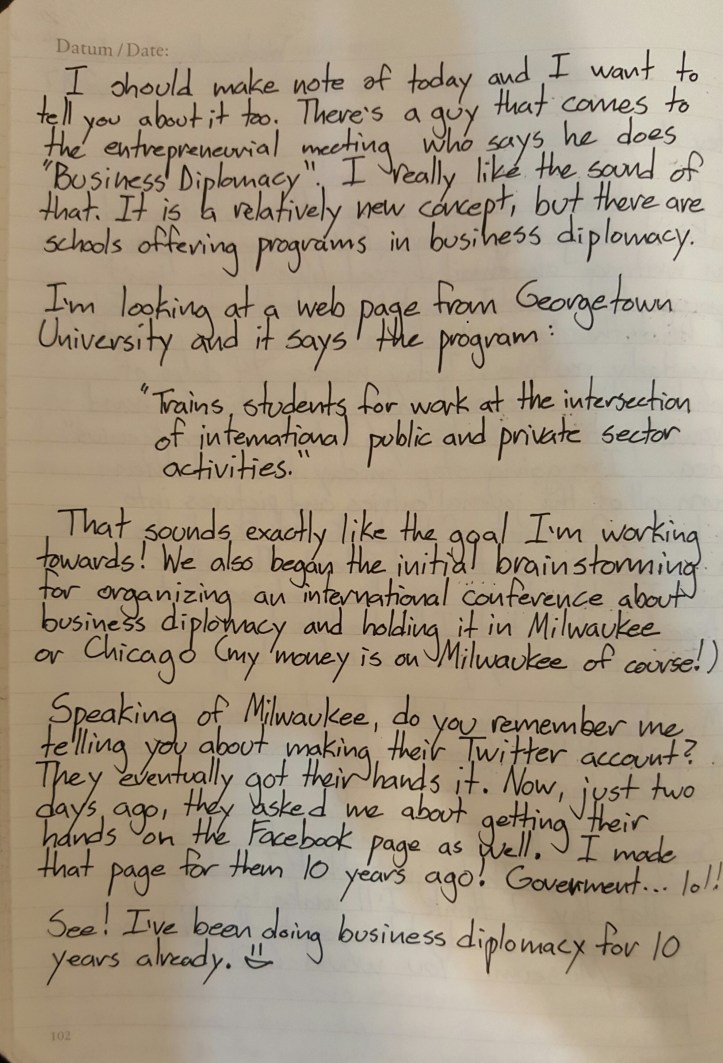 Datum / Date:
I should make note of today and I want to
tell you about it too. There's a guy that comes to
the entrepreneurial meeting who says he does
"Business Diplomacy". I really like the sound of
that. It is a relatively new concept, but there are
schools offering programs in business diplomacy.
I'm looking at a web page from Georgetown
University and it says the program:
"Trains students for work at the intersection
of international public and private sector
activities."
That sounds exactly like the goal I'm working
towards! We also began the initial brainstorming
for organizing an international conference about
business diplomacy and holding it in Milwaukee
or Chicago (my money is on Milwaukee of course!)
Speaking of Milwaukee, do you remember me
telling you about making their Twitter account?
They eventually got their hands it. Now, just two
days ago, they asked me about getting their
hands on the Facebook page as well. I made
that page for them 10 years ago! Government... lol!
See! I've been doing business diplomacy for 10
years already.
102